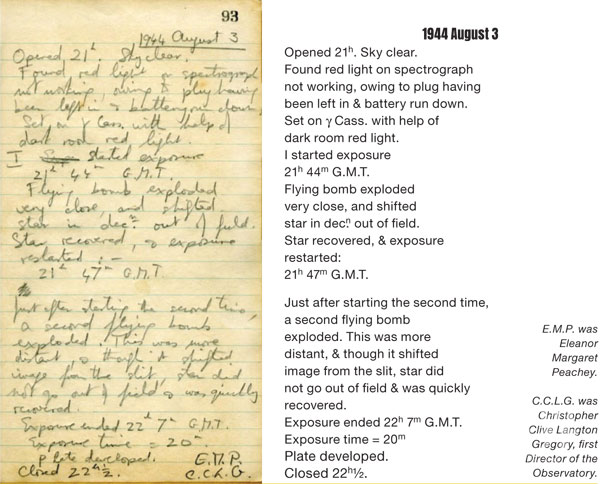 93
1944 August 3
Opened 21ʰ. Sky clear.
Found red light on spectrograph
not working, owing to plug having
been left in & battery run down.
Set on γ Cass. with help of
dark room red light.
I started exposure
21ʰ 44ᵐ G.M.T.
Flying bomb exploded
very close, and shifted
star in decⁿ. out of field.
Star recovered, & exposure
restarted :-
21ʰ 47ᵐ G.M.T.
Just after starting the second time,
a second flying bomb
exploded. This was more
distant, & though it shifted
image from the slit, star did
not go out of field & was quickly
recovered.
Exposure ended 22ʰ 7ᵐ G.M.T.
Exposure time = 20ᵐ
Plate developed.
Closed 22ʰ½.
E.M.P.
C.C.L.G.
1944 August 3
Opened 21ʰ. Sky clear.
Found red light on spectrograph
not working, owing to plug having
been left in & battery run down.
Set on γ Cass. with help of
dark room red light.
I started exposure
21ʰ 44ᵐ G.M.T.
Flying bomb exploded
very close, and shifted
star in decⁿ. out of field.
Star recovered, & exposure
restarted:
21ʰ 47ᵐ G.M.T.
Just after starting the second time,
a second flying bomb
exploded. This was more
distant, & though it shifted
image from the slit, star did
not go out of field & was quickly
recovered.
Exposure ended 22ʰ 7ᵐ G.M.T.
Exposure time = 20ᵐ
Plate developed.
Closed 22ʰ½.
E.M.P. was
Eleanor
Margaret
Peachey.
C.C.L.G. was
Christopher
Clive Langton
Gregory, first
Director of the
Observatory.